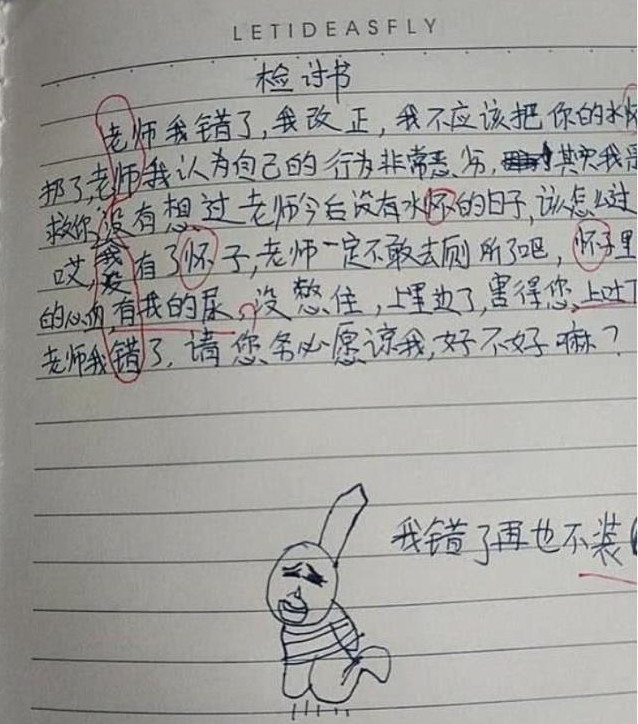 LETIDEASFLY
检讨书
老师我错了,我改正,我不应该把你的水怀
扔了,老师我认为自己的行为非常恶劣,其实我是
救你,没有想过老师今后没有水怀的日子,该怎么过
哎,我没有了怀子,老师一定不敢去厕所了吧,怀子里
的心血,有我的尿,没憋住,上里边了,害得您,上吐下
老师我错了,请您务必愿谅我,好不好嘛?
我错了再也不装